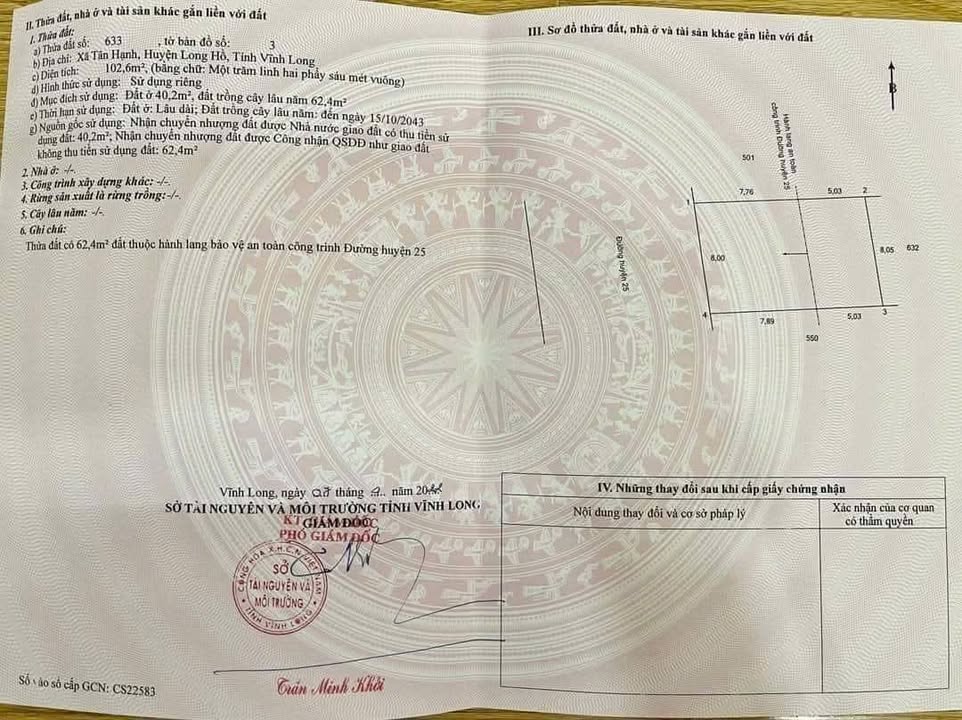 II. Thửa đất, nhà ở và tài sản khác gắn liền với đất
1. Thửa đất:
a) Thửa đất số: 633 , tờ bản đồ số: 3
b) Địa chỉ: Xã Tân Hạnh, Huyện Long Hồ, Tỉnh Vĩnh Long
c) Diện tích: 102,6m², (bằng chữ: Một trăm linh hai phẩy sáu mét vuông)
d) Hình thức sử dụng: Sử dụng riêng
đ) Mục đích sử dụng: Đất ở 40,2m², đất trồng cây lâu năm 62,4m²
e) Thời hạn sử dụng: Đất ở: Lâu dài; Đất trồng cây lâu năm: đến ngày 15/10/2043
g) Nguồn gốc sử dụng: Nhận chuyển nhượng đất được Nhà nước giao đất có thu tiền sử
dụng đất: 40,2m²; Nhận chuyển nhượng đất được Công nhận QSDĐ như giao đất
không thu tiền sử dụng đất: 62,4m²
2. Nhà ở: -/-.
3. Công trình xây dựng khác: -/-.
4. Rừng sản xuất là rừng trồng: -/-.
5. Cây lâu năm: -/-.
6. Ghi chú:
Thửa đất có 62,4m² đất thuộc hành lang bảo vệ an toàn công trình Đường huyện 25
Vĩnh Long, ngày tháng năm 20
SỞ TÀI NGUYÊN VÀ MÔI TRƯỜNG TỈNH VĨNH LONG
KT. GIÁM ĐỐC
PHÓ GIÁM ĐỐC
CỘNG HÒA X.H.C.N VIỆT NAM
SỞ
TÀI NGUYÊN VÀ
MÔI TRƯỜNG
TỈNH VĨNH LONG
Trần Minh Khởi
Số vào sổ cấp GCN: CS22583
III. Sơ đồ thửa đất, nhà ở và tài sản khác gắn liền với đất
B
Hành lang an toàn
công trình Đường huyện 25
501
7,76
5,03
2
1
Đường huyện 25
8,00
8,05
632
4
7,89
5,03
3
550
IV. Những thay đổi sau khi cấp giấy chứng nhận
Nội dung thay đổi và cơ sở pháp lý
Xác nhận của cơ quan
có thẩm quyền